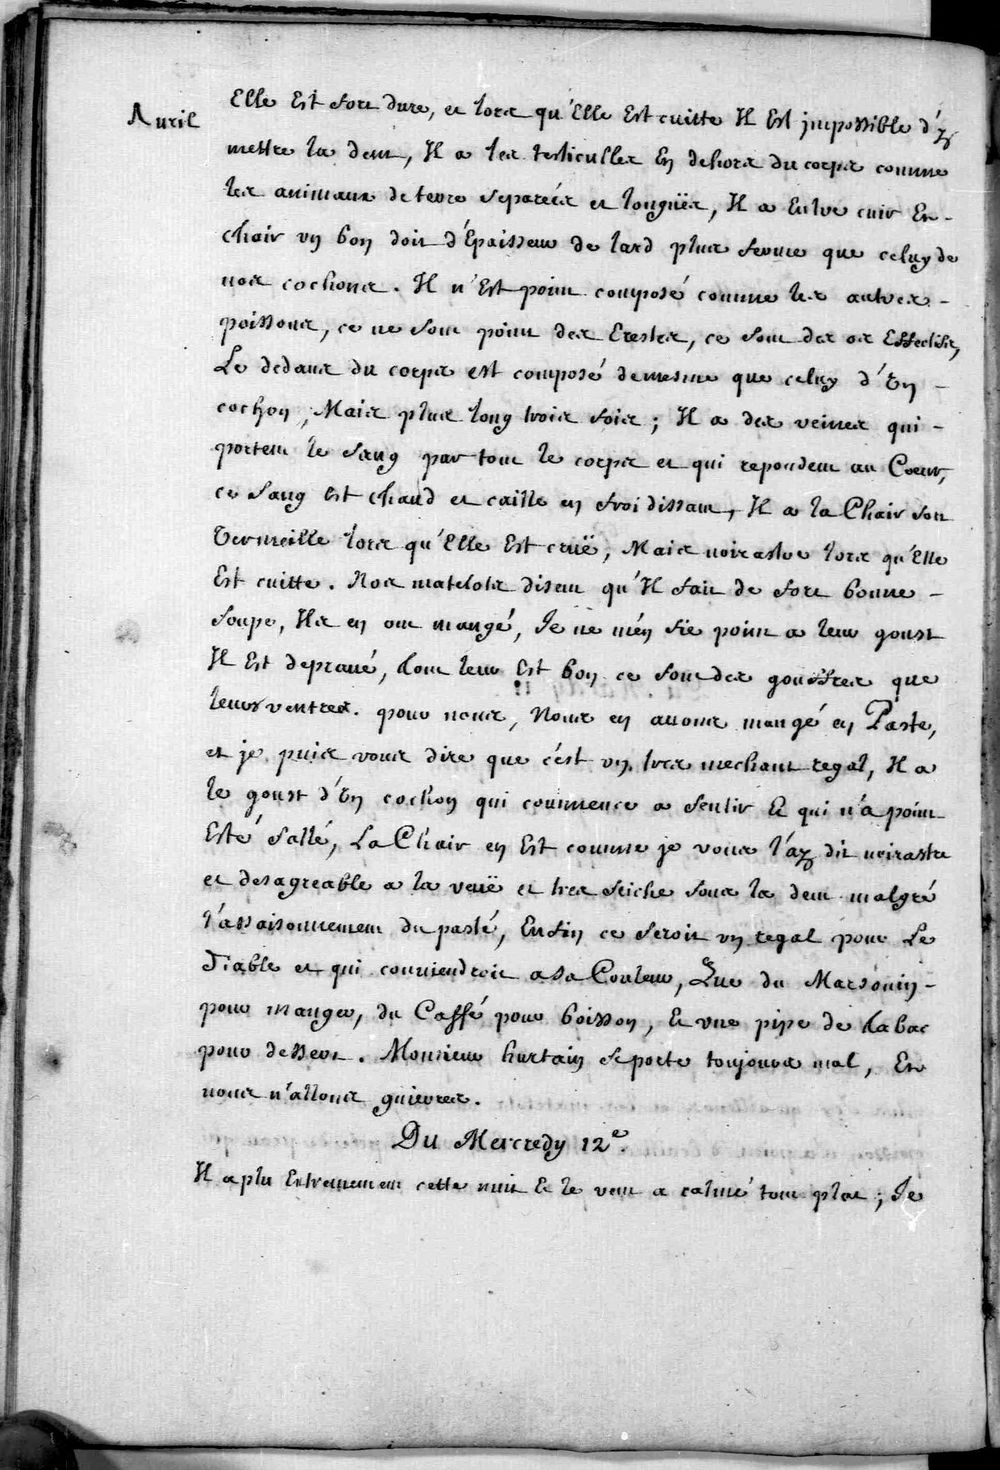 Auril
Elle Est fort dure, et lors qu'Elle Est cuitte Il Est jmpossible d'y
mettre la dent, Il a les testiculles En dehors du corps comme
les animaux de terre separées et longuës, Il a Entre cuir Et -
chair vn bon doit d'Epaisseur de lard plus ferme que celuy de
nos cochons. Il n'Est point composé comme les autres -
poissons, ce ne sont point des Erestes, ce sont des os Effectifs,
Le dedans du corps est composé demesme que celuy d'Vn -
cochon, Mais plus long trois fois ; Il a des veines qui -
portent le sang par tout le corps et qui repondent au Coeur,
ce sang est chaud et caille en froidissant, Il a la Chair fort
Vermeille lors qu'Elle Est cruë, Mais noirastre lors qu'Elle
Est cuitte. Nos matelots disent qu'Il fait de fort bonne -
soupe, Ils en ont mangé, Je ne m'en fie point a leur goust
Il Est depraué, tout leur Est bon ce sont des gouffres que
leurs ventres. pour nous, Nous en auons mangé en Paste,
et je puis vous dire que c'est vn tres mechant regal, Il a
le goust d'Vn cochon qui commence a sentir Et qui n'a point
Esté sallé, La Chair en Est comme je vous l'ay dit noirastre
et desagreable a la veuë et tres seiche sous la dent malgré
l'assaisonnement du pasté, Enfin ce seroit vn regal pour Le
Diable et qui conviendroit a sa Couleur, Que du Marsouin -
pour manger, du Caffé pour boisson, Et vne pipe de tabac
pour dessert. Monsieur hurtain se porte toujours mal, Et
nous n'allons guierres.
Du Mercredy 12e.
Il a plu Extremement cette nuit Et le vent a calmé tout plat ; Je